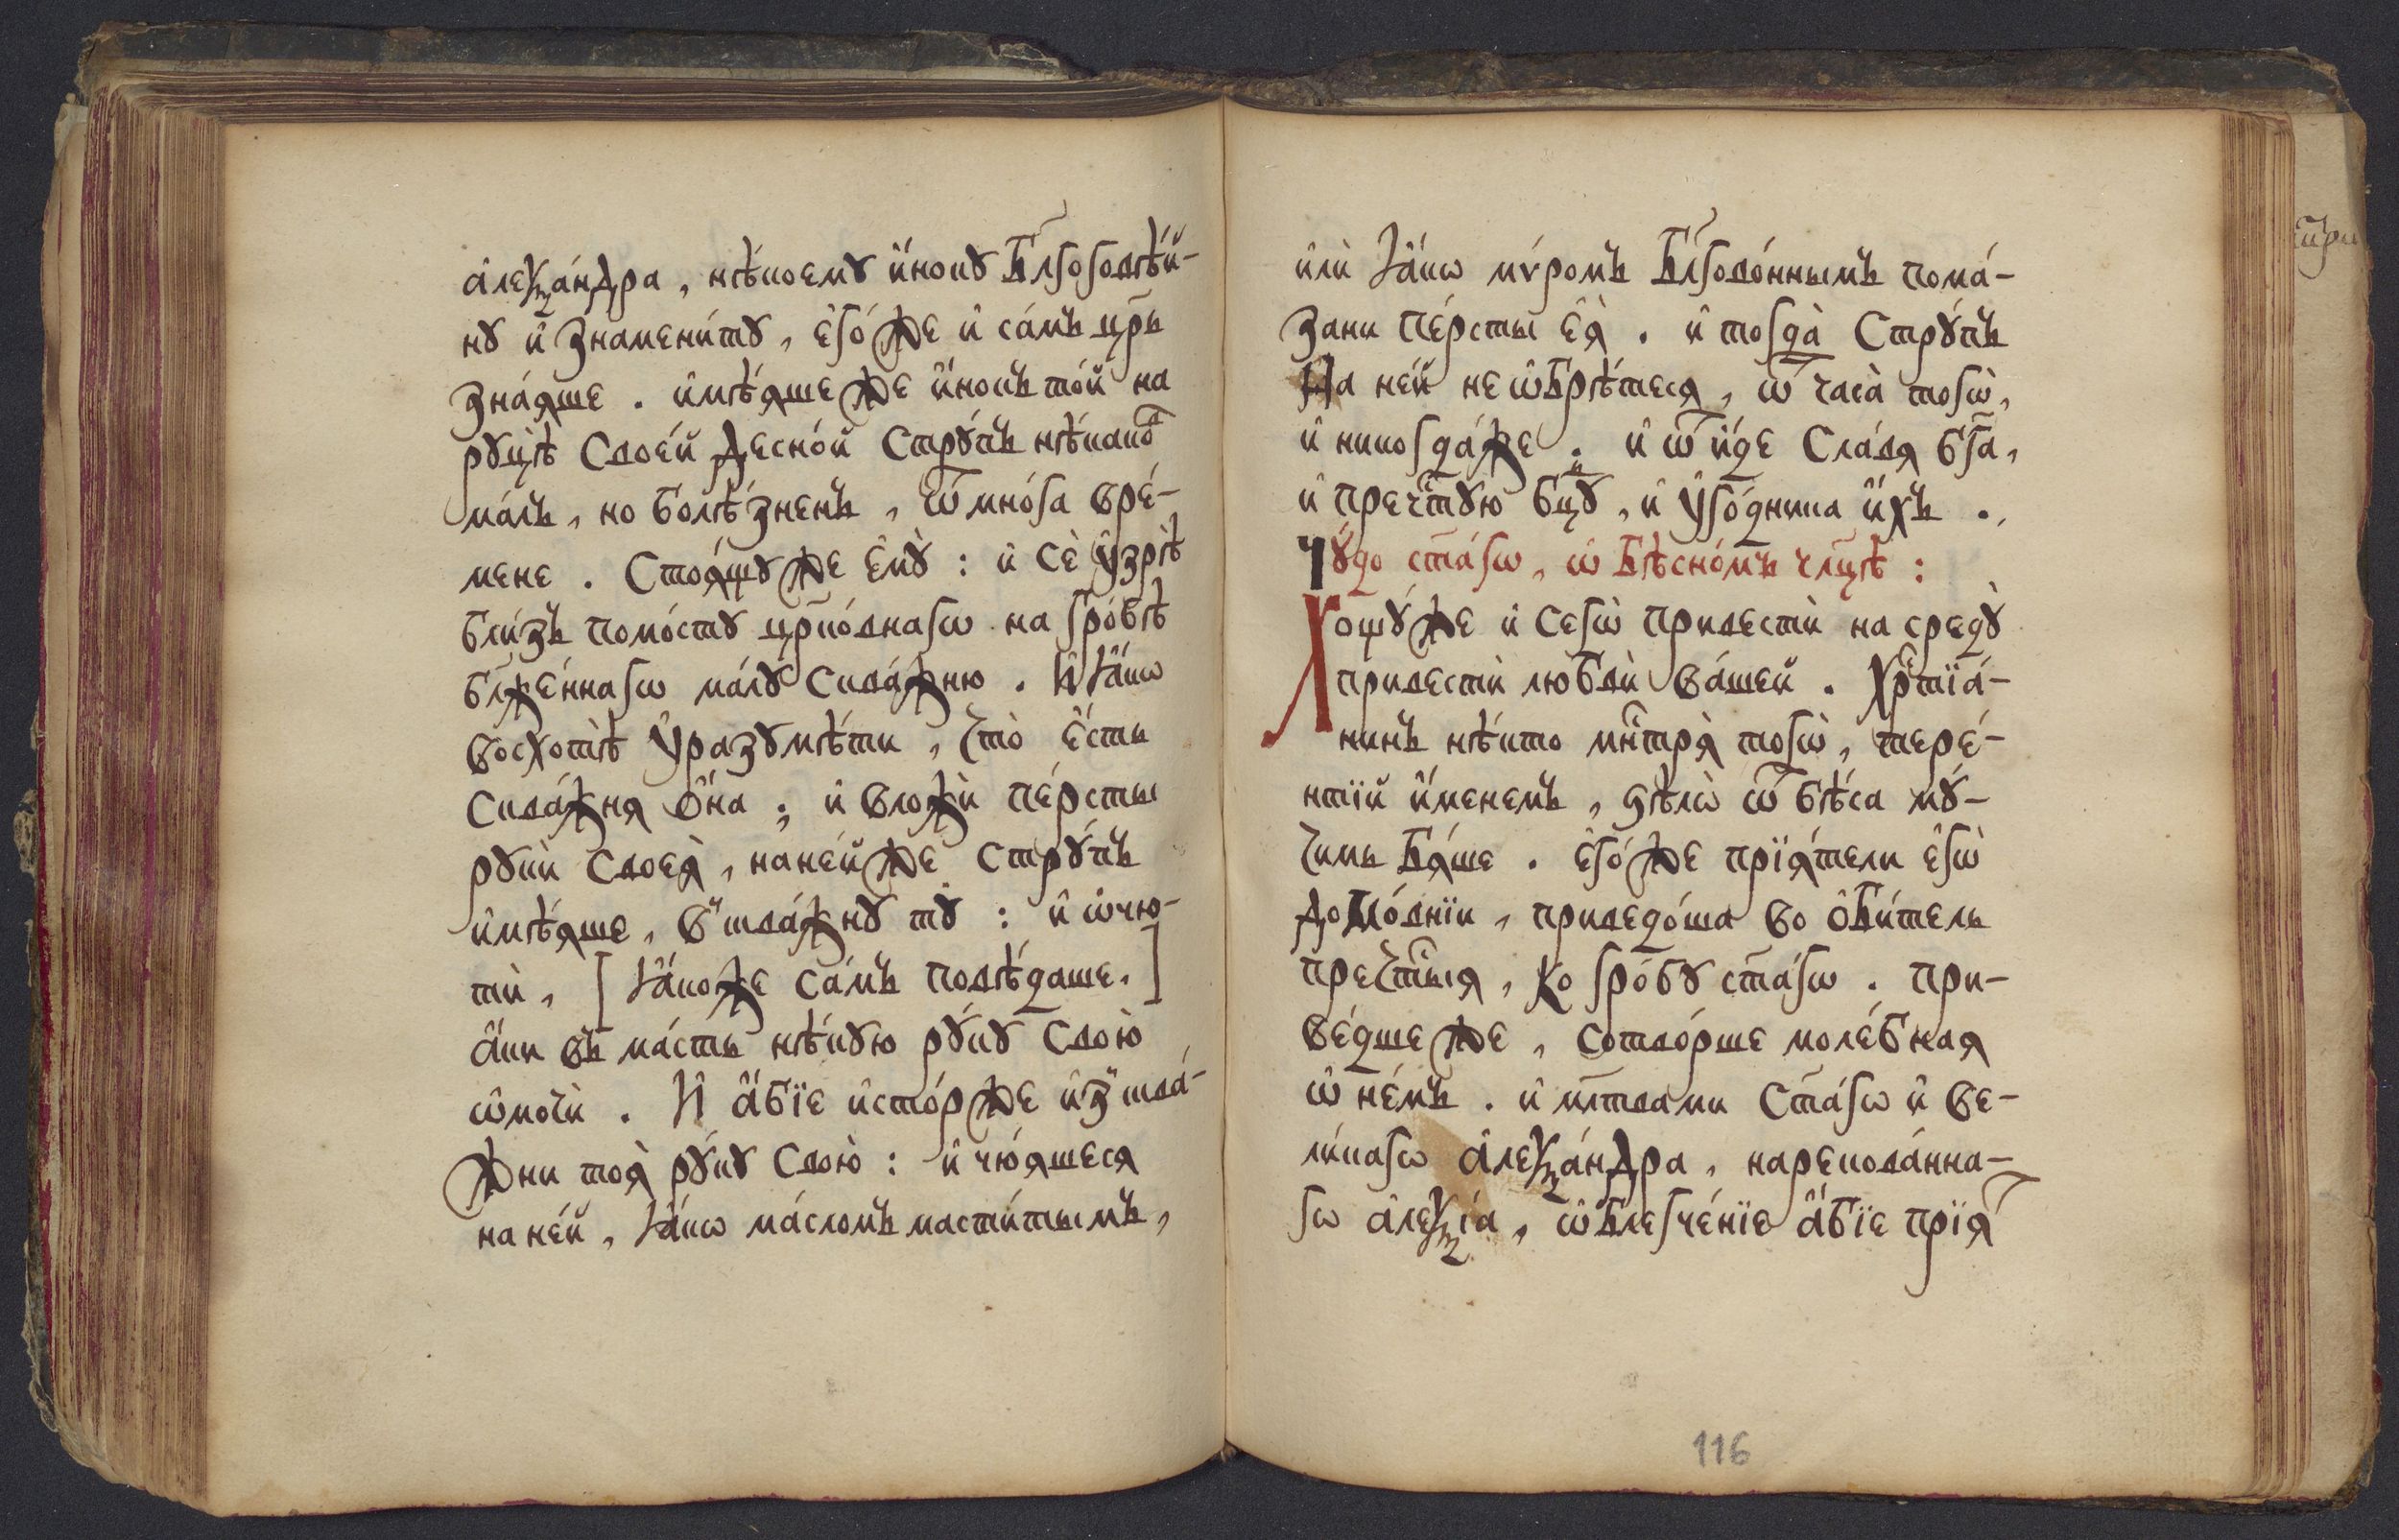 а҆леѯа́ндра, нѣ́коемꙋ и҆́нокꙋ бл҃гоговѣ́й-
нꙋ и҆ знамени́тꙋ, є҆го́ же и҆ са́мъ цр҃ь
зна́яше. и҆мѣ́яше же и҆́нокъ то́й на
рꙋцѣ̀ своє́й десно́й стрꙋ́пъ нѣ́каковⷣ
ма́лъ, но болѣ́зненъ, ѿ мно́га вре́-
мене. Стоя́щꙋ же є҆мꙋ̀: и҆ сѐ ᲂу҆зрѣ̀
бли́зъ помо́стꙋ цр҃ко́внагѡ на гро́бѣ
бл҃же́ннагѡ ма́лꙋ сква́жню. И҆ ꙗ҆́кѡ
восхотѣ̀ ᲂу҆разꙋмѣ́ти, что̀ є҆́сть
сква́жня ѻ҆́на; и҆ вложѝ пе́рсты
рꙋкѝ своеѧ̀, на не́й же стрꙋ́пъ
и҆мѣ́яше, в̾ тва́жнꙋ тꙋ̀: и҆ ѡ҆чю-
тѝ, [ ꙗ҆́коже са́мъ повѣ́даше. ]
а҆́ки въ ма́сть нѣ́кꙋю рꙋ́кꙋ свою̀
ѡ҆мочѝ. И҆ а҆́бїе и҆сто́рже и҆з̾ тва́-
жни тоѧ̀ рꙋ́кꙋ свою̀: и҆ чю́яшеся
на не́й, ꙗ҆́кѡ ма́сломъ масти́тымъ,
и҆лѝ ꙗ҆́кѡ мѵ́ромъ бл҃гово́ннымъ пома́-
зани пе́рсты є҆ѧ̀. и҆ тогда̀ стрꙋ́пъ
на не́й не ѡ҆брѣ́теся, ѿ часа̀ тогѡ̀,
и҆ никогда́же. и҆ ѿи́де сла́вѧ бг҃а,
и҆ пречⷭ҇тꙋю бцⷣꙋ, и҆ ᲂу҆го́дника и҆́хъ.
Чꙋ́до ст҃а́гѡ, ѡ҆ бѣсно́мъ чл҃цѣ:
Хощꙋ́ же и҆ сегѡ̀ привестѝ на средꙋ̀
привестѝ любвѝ ва́шей. Хрⷭ҇тїа́-
нинъ нѣ́кто мн҃трѧ̀ тогѡ̀, тере́-
нтїй и҆́менемъ, ѕѣлѡ̀ ѿ бѣ́са мꙋ́-
чимь бя́ше. є҆го́ же прїя́тели є҆гѡ̀
домо́внїи, приведо́ша во ѻ҆би́тель
пречⷭ҇тыя, ко гро́бꙋ ст҃а́гѡ. При-
ве́дше же, сотво́рше моле́бная
ѡ҆ не́мъ. и҆ мл҃твами ст҃а́гѡ и҆ ве-
ли́кагѡ а҆леѯа́ндра, нарекова́нна-
гѡ а҆леѯі́а, ѡ҆блегче́нїе а҆́бїе прїя̀
116